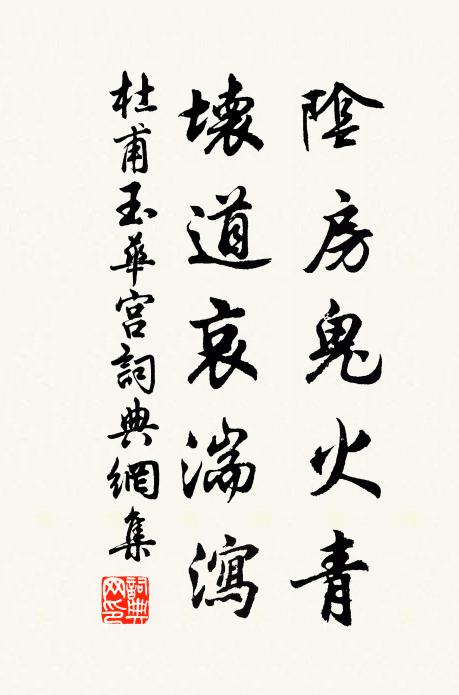 陰房鬼火青
壞道哀湍瀉
杜甫玉華宮詞典網集
詞典網印